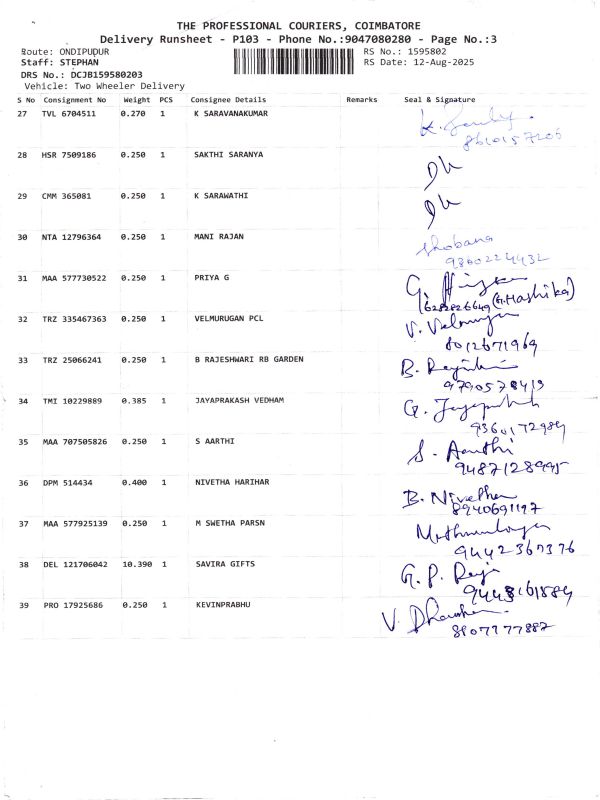 THE PROFESSIONAL COURIERS, COIMBATORE
Delivery Runsheet - P103 - Phone No.:9047080280 - Page No.:3
Route: ONDIPUDUR RS No.: 1595802
Staff: STEPHAN RS Date: 12-Aug-2025
DRS No.: DCJB159580203
Vehicle: Two Wheeler Delivery
S No Consignment No Weight PCS Consignee Details Remarks Seal & Signature
27 TVL 6704511 0.270 1 K SARAVANAKUMAR
28 HSR 7509186 0.250 1 SAKTHI SARANYA
29 CMM 365081 0.250 1 K SARAWATHI
30 NTA 12796364 0.250 1 MANI RAJAN Shobana
31 MAA 577730522 0.250 1 PRIYA G G.
(G.Hashika)
32 TRZ 335467363 0.250 1 VELMURUGAN PCL V. Velmurugan
8012671969
33 TRZ 25066241 0.250 1 B RAJESHWARI RB GARDEN B.
9790578419
34 TMI 10229889 0.385 1 JAYAPRAKASH VEDHAM G. Jayaprakash
9360172984
35 MAA 707505826 0.250 1 S AARTHI S. Aarthi
9487128995
36 DPM 514434 0.400 1 NIVETHA HARIHAR B. Nivetha
8940691197
37 MAA 577925139 0.250 1 M SWETHA PARSN
9442367376
38 DEL 121706042 10.390 1 SAVIRA GIFTS G. P. Raja
9443161884
39 PRO 17925686 0.250 1 KEVINPRABHU V.
8907777887